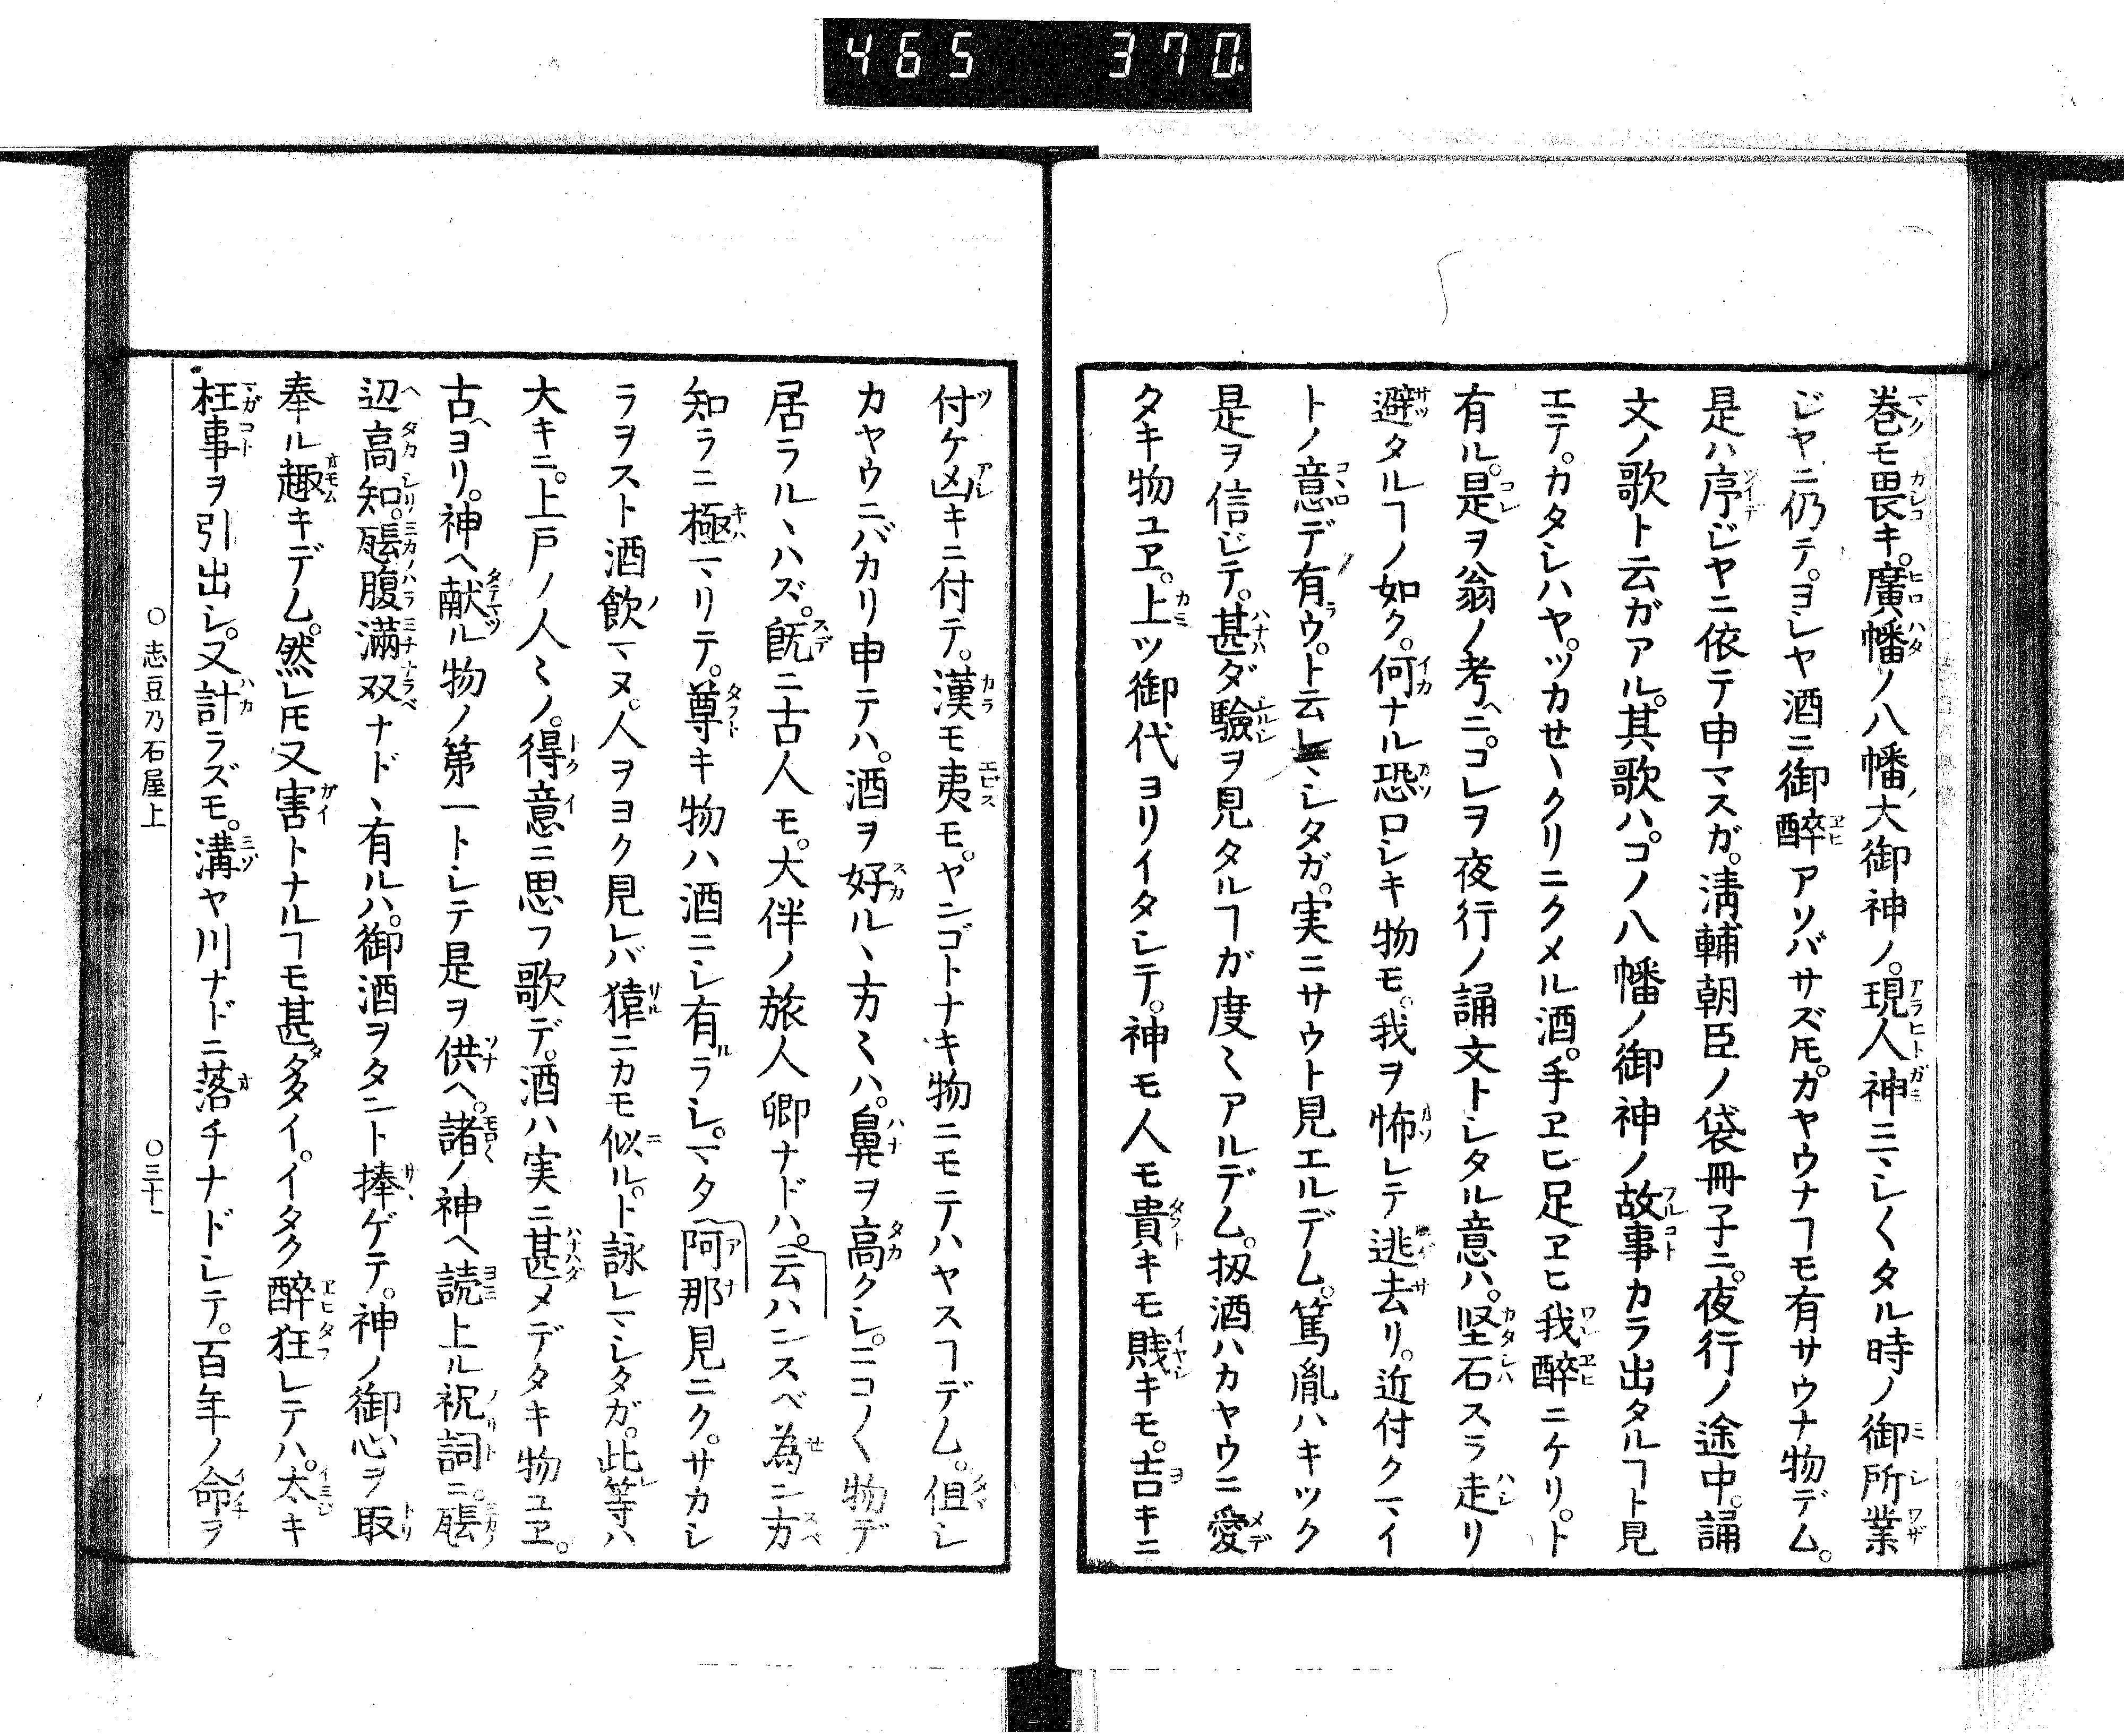 465 370.
巻モ畏キ。廣幡ノ八幡ノ大御神ノ。現人神ニマシ〱タル時ノ御所業
ジヤニ仍テ。ヨシヤ酒ニ御醉アソバサズ𪜈。カヤウナヿモ有サウナ物デム。
是ハ序ジヤニ依テ申マスガ。淸輔朝臣ノ袋冊子ニ。夜行ノ途中。誦
文ノ歌ト云ガアル。其歌ハ。コノ八幡ノ御神ノ故事カラ出タルヿト見
エテ。カタシハヤ。ツカセヽクリニクメル酒。手ヱヒ足ヱヒ我醉ニケリ。ト
有ル。是ヲ翁ノ考ヘニ。コレヲ夜行ノ誦文トシタル意ハ。堅石スラ走リ
避タルヿノ如ク。何ナル恐ロシキ物モ。我ヲ怖レテ逃去リ。近付クマイ
トノ意デ有ラウ。ト云レマシタガ。実ニサウト見エルデム。篤胤ハキツク
是ヲ信ジテ。甚ダ驗ヲ見タルヿガ度〻アルデム。扨酒ハカヤウニ愛
タキ物ユヱ。上ツ御代ヨリイタシテ。神モ人モ貴キモ賤キモ。吉キニ
付ケ凶キニ付テ。漢モ夷モ。ヤンゴトナキ物ニモテハヤスヿデム。但シ
カヤウニバカリ申テハ。酒ヲ好ルヽ方〻ハ。鼻ヲ高クシ。ニコ〱物デ
居ラルヽハズ。既ニ古人モ。大伴ノ旅人卿ナドハ。云ハンスベ為ン方
知ラニ極マリテ。尊キ物ハ酒ニシ有ラシ。マタ阿那見ニク。サカシ
ラヲスト酒飲マヌ。人ヲヨク見レバ猿ニカモ似ル。ト詠レマシタガ。此等ハ
大キニ。上戸ノ人〻ノ。得意ニ思フ歌デ。酒ハ実ニ甚メデタキ物ユヱ。
古ヘヨリ。神ヘ献ル物ノ第一トシテ是ヲ供ヘ。諸ノ神ヘ読上ル祝詞ニ。𤭖
辺高知。𤭖腹満双ナドヽ有ルハ。御酒ヲタント捧ゲテ。神ノ御心ヲ取
奉ル趣キデム。然レ𪜈又害トナルヿモ甚タ多イ。イタク醉狂レテハ。太キ
枉事ヲ引出シ。又計ラズモ。溝ヤ川ナドニ落チナドシテ。百年ノ命ヲ
○志豆乃石屋上 ○三十一